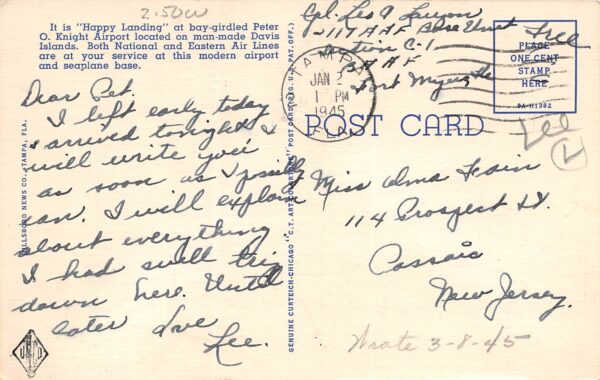 2.50 W
It is "Happy Landing" at bay-girdled Peter
O. Knight Airport located on man-made Davis
Islands. Both National and Eastern Air Lines
are at your service at this modern airport
and seaplane base.
Dear Pet.
I left early today
& arrived tonight &
will write you
as soon as I possibly
can. I will explain
about everything
I had swell trip
down here. Until
later Love
Lee.
HILLSBORO NEWS CO., TAMPA, FLA.
GENUINE CURTEICH-CHICAGO "C.T. ART-COLORTONE" POST CARD (REG. U.S. PAT. OFF.)
Cpl. Leo A
2117 AAF Base Unit
Section C-1
AAF
Fort Myers Fla
Free
TAMPA
JAN 2
1 PM
1945
FLA.
PLACE
ONE CENT
STAMP
HERE
8A-H1382
POST CARD
Lee
Miss Alma Fain
114 Prospect St.
Passaic
New Jersey.
Wrote 3-8-45